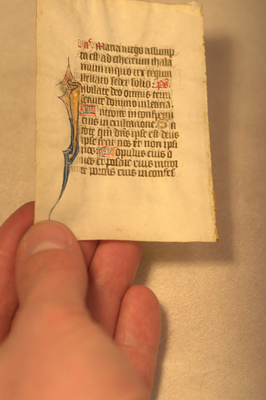 a Maria uirgo assump
ta est ad ethereum thala
mum in quo rex regum
stellato sedet solio. Ps
Iubilate deo omnis terra
seruite domino in leticia.
Introite in conspectu
eius in exultatione. S
tote qui dns ipse est deus
ipse fecit nos et non ipsi
nos. Populus eius o
ues et pascue eius introi
te portas eius in confes